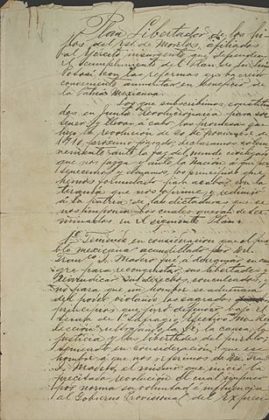 Plan Libertador de los hi-
jos del Estado de Morelos, afiliados
al Ejército Insurgente que defiende
el cumplimiento del Plan de San Luis
Potosí, con las reformas que ha creido
conveniente aumentar en beneficio de
la Patria Mexicana.
Los que subscribimos, constituidos
en Junta Revolucionaria para soste-
ner y llevar a cabo las promesas que
hizo la revolución de 20 de Noviembre de
1910, próximo pasado, declaramos solemne-
mente ante la faz del mundo
que nos juzga y ante la Nación a que
pertenecemos y amamos, los principios que
hemos formulado para acabar con la
tiranía que nos oprime y redimir
a la patria de las dictaduras que se
nos imponen las cuales quedan deter-
minadas en el siguiente Plan:
1º Teniendo en consideración que el pue-
blo mexicano acaudillado por Don
Franco. I. Madero fué a derramar su san-
gre para reconquistar sus libertades y
reivindicar derechos conculcados,
y no para que un hombre se adueñara
del poder violando los sagrados
principios que juró defender bajo el
lema de "Sufragio Efectivo" "No Ree-
lección" ultrajando la fé, la causa, la
justicia y las libertades del pueblo;
teniendo en consideración: que ese
hombre a que nos referimos es Don Franco.
I. Madero, el mismo que inició la
precitada revolución el cual impuso
por norma su voluntad e influencia
al Gobierno Provisional del Ex-presi-